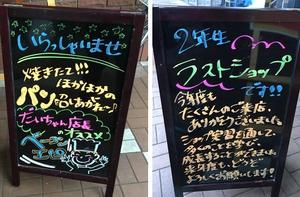 いらっしゃいませ
焼きたて!!!
ほかほかの
パン
召しあがれ〜♪
だいちゃん店長
のオススメ
ベーコン
2年生
ラストショップ
です!!
今年度も
たくさんのご来店
ありがとうございました
ショップ学習を通して
多くのことを学び
成長することができました
来年度もどうぞ
よろしくお願いします!